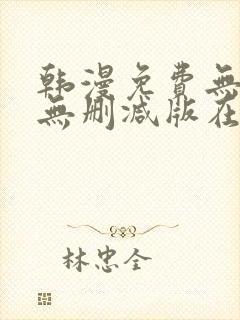 韩漫免費無
無删减版在
林忠全